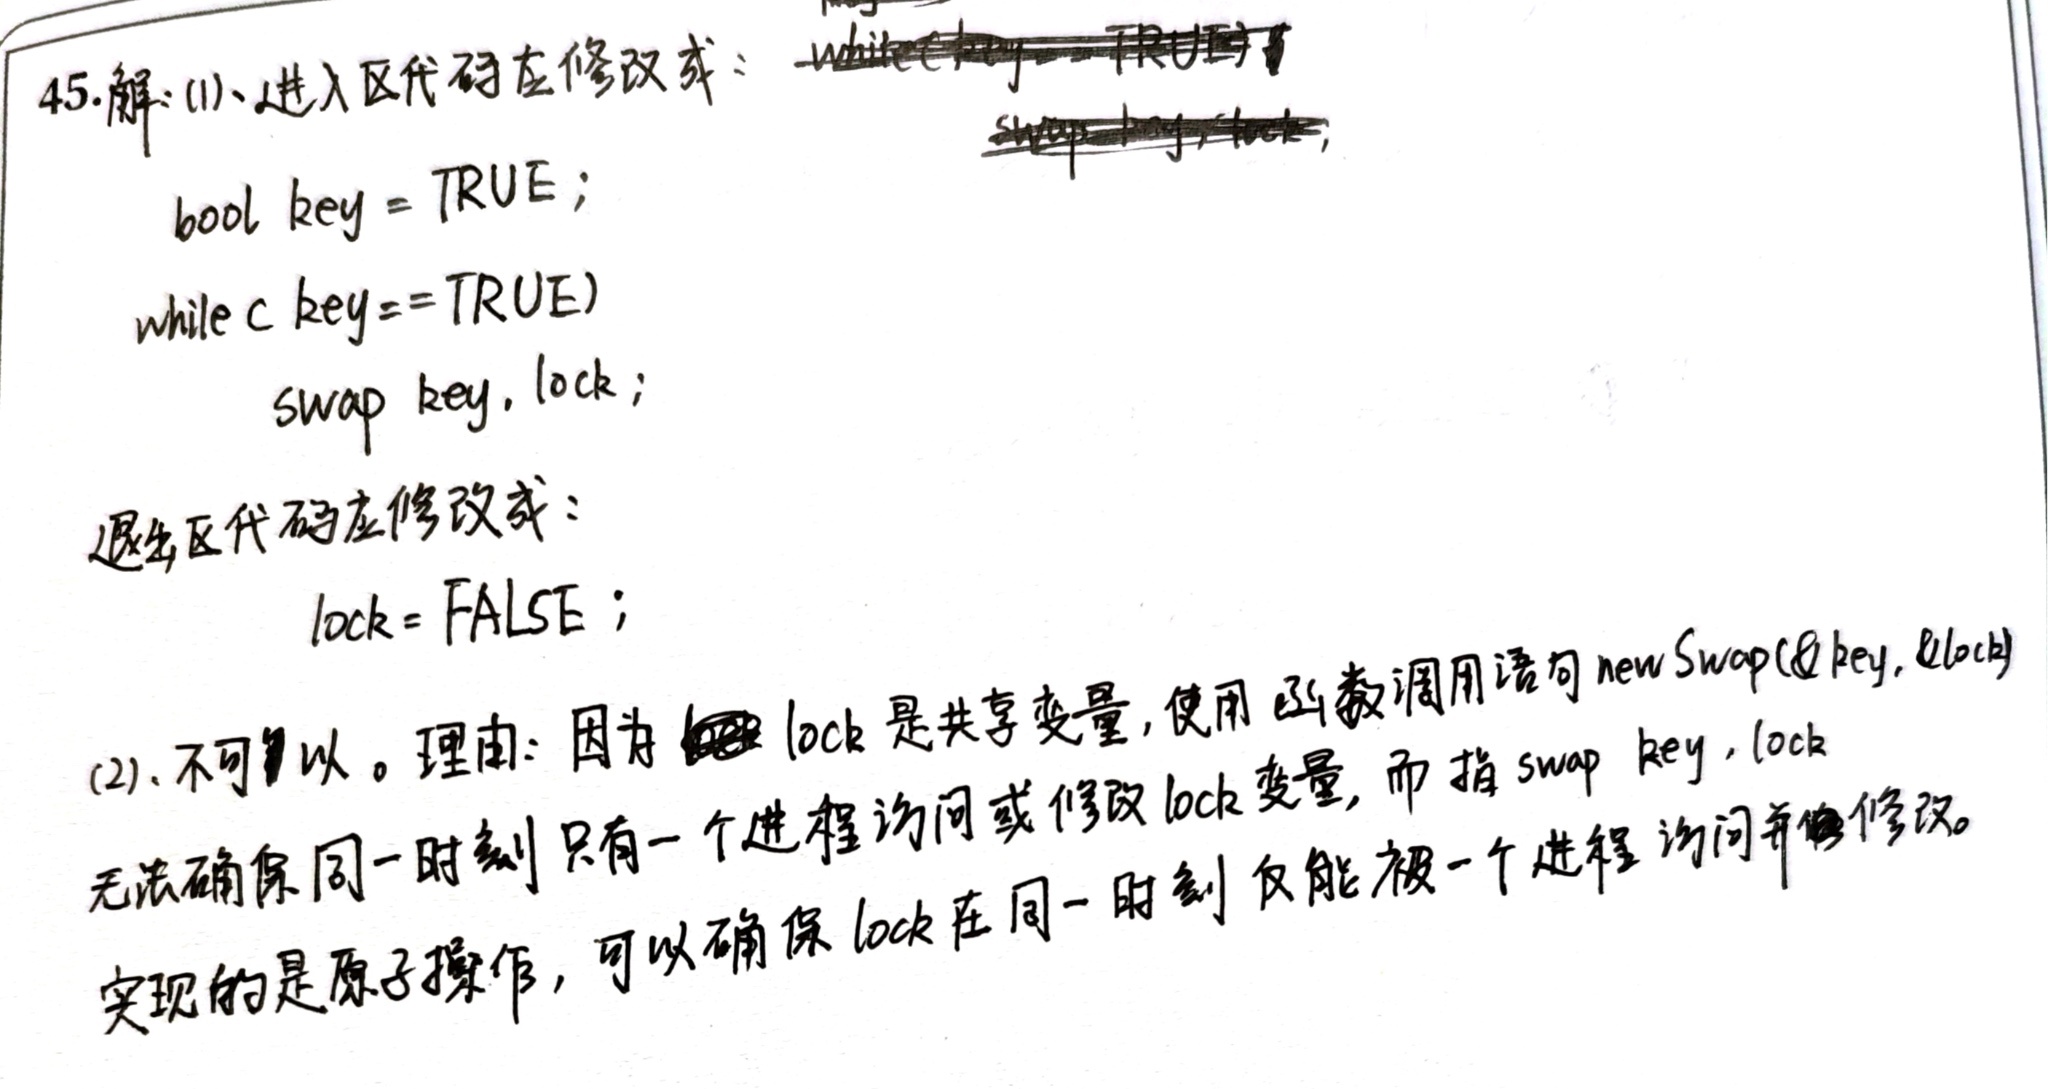 45.解:(1)、进入区代码应修改成:
bool key = TRUE;
while( key==TRUE)
swap key, lock;
退出区代码应修改成:
lock = FALSE;
(2)、不可以。理由:因为 lock 是共享变量,使用函数调用语句 newSwap(&key, &lock)
无法确保同一时刻只有一个进程访问或修改lock变量,而指 swap key, lock
实现的是原子操作,可以确保 lock在同一时刻仅能被一个进程访问并修改。